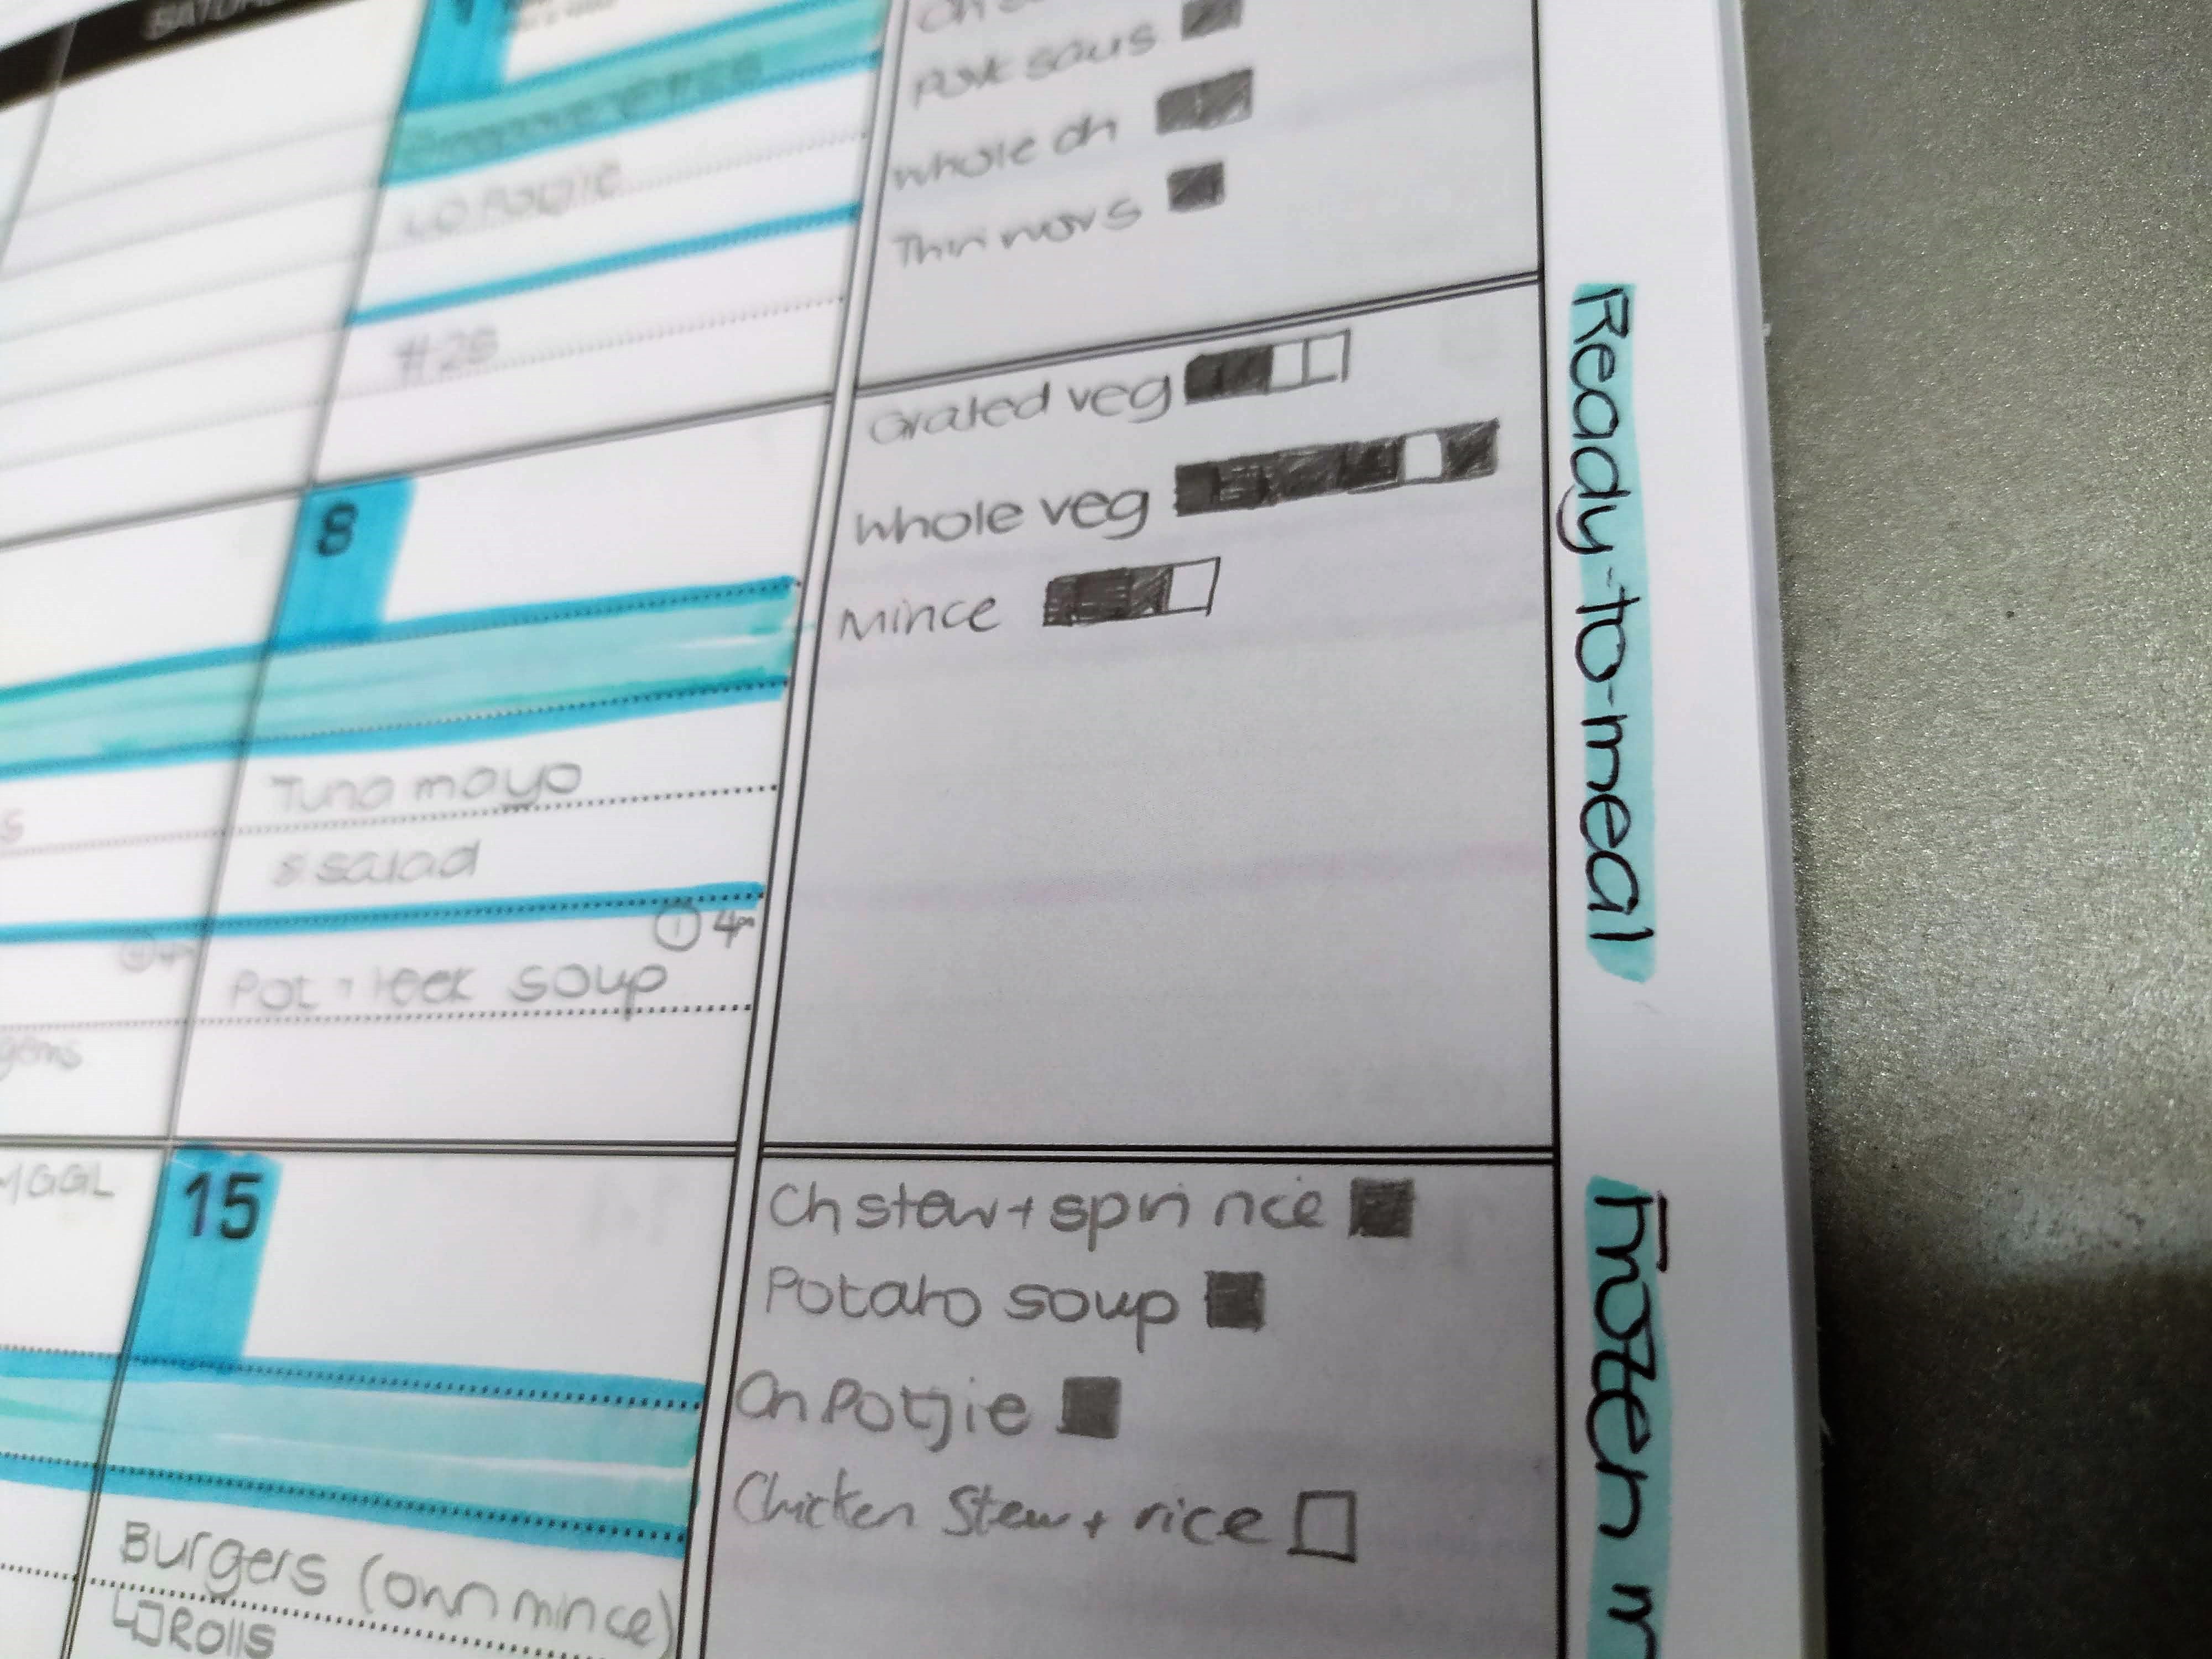 Pork saus
whole ch
Thin wors
LO Potjie
Grated veg
whole veg
Mince
8
Tuna mayo
& salad
① 4
Pot + leek soup
gems
15
Ch stew + spri rice
Potato soup
Ch Potjie
Chicken Stew + rice
Burgers (own mince)
Rolls
Ready-to-meal
Frozen